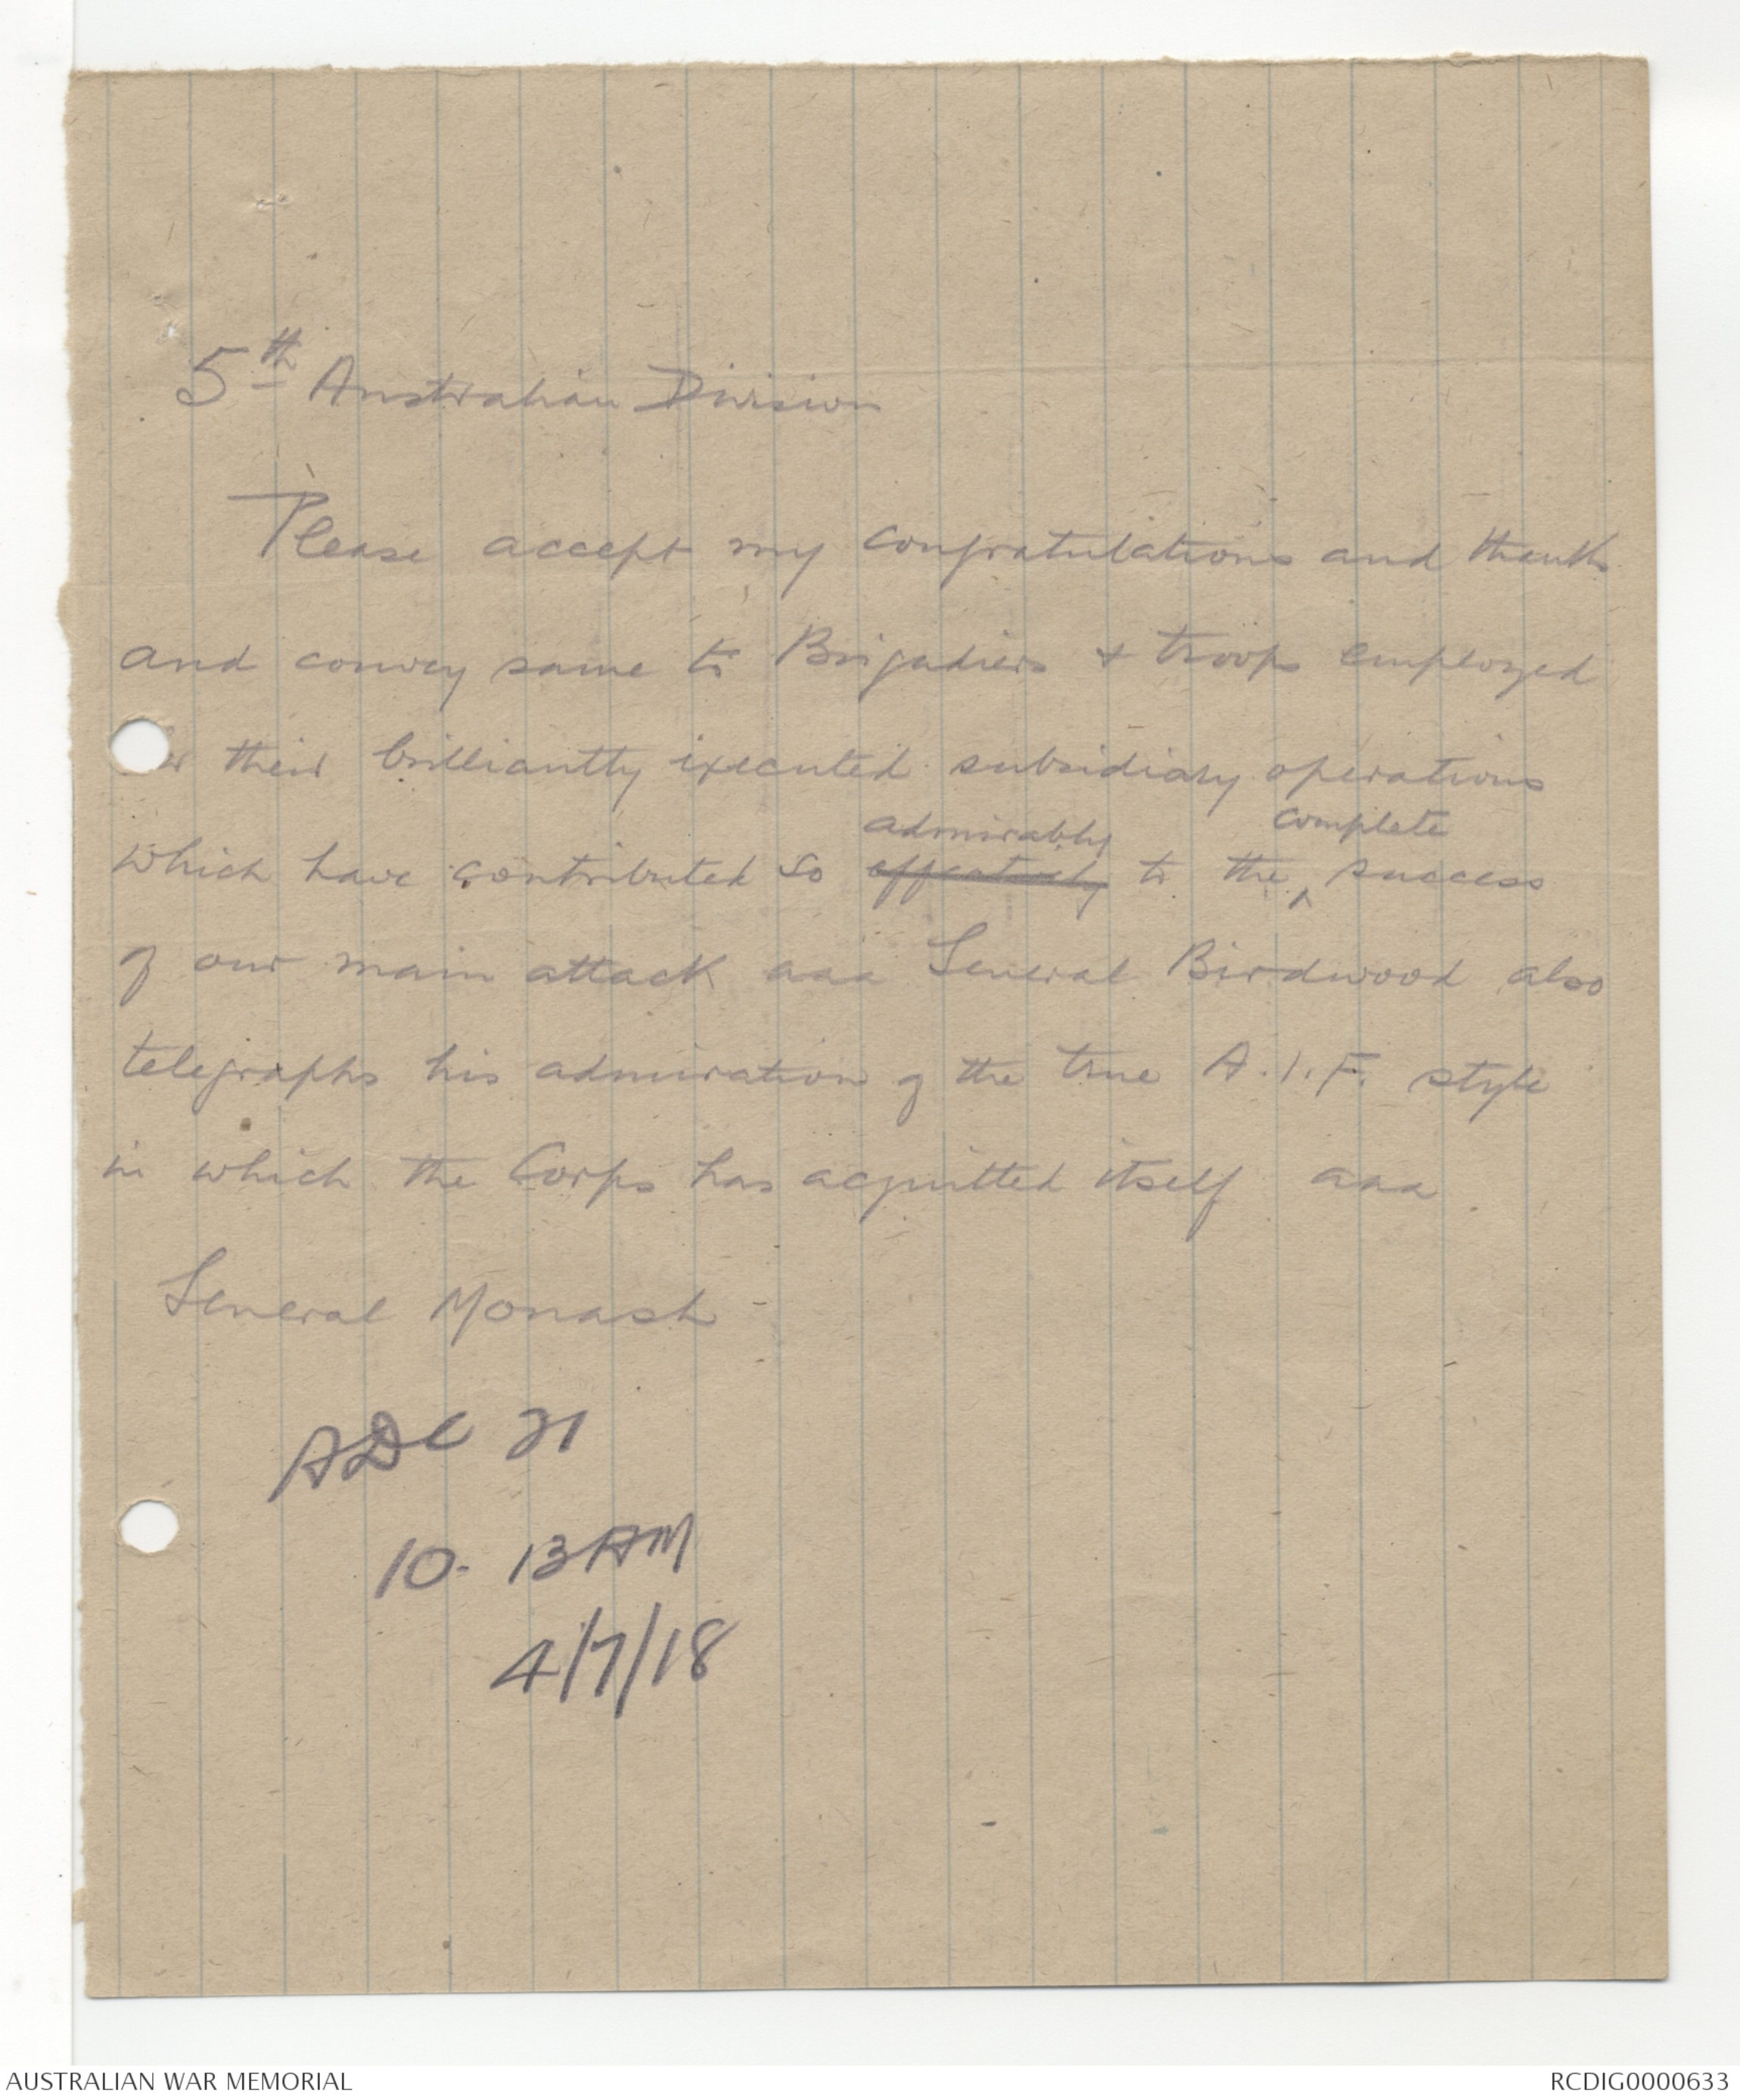 5th Australian Division
Please accept my congratulations and thanks
and convey same to Brigadiers & troops employed
their brilliantly executed subsidiary operations
admirably complete
which have contributed so effectively to the success
of our main attack aaa General Birdwood also
telegraphs his admiration of the true A.I.F. style
in which the Corps has acquitted itself aaa
General Monash
ADC 21
10. 13 AM
4/7/18
AUSTRALIAN WAR MEMORIAL
RCDIG0000633